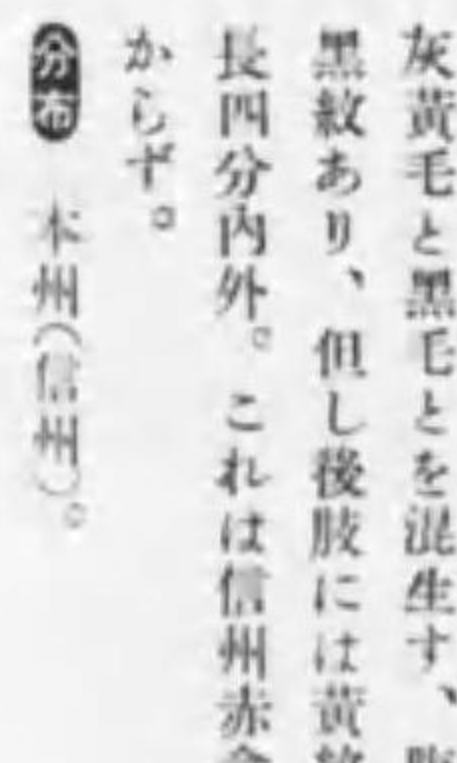 灰黃毛と黑毛とを混生す、
黑紋あり、但し後肢には黃
長四分內外。これは信州赤
からず。
分布 本州(信州)。